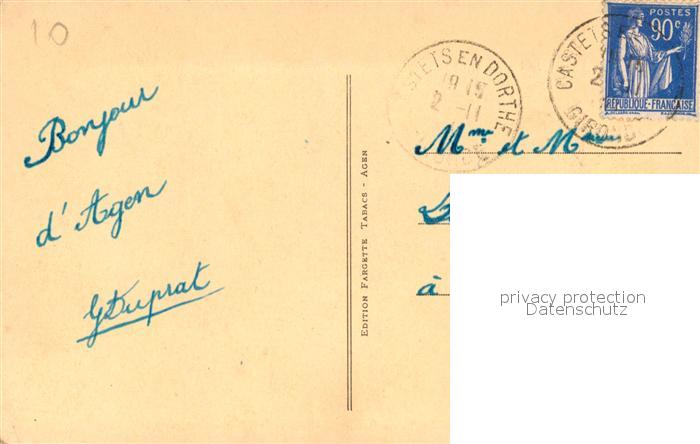 10
Bonjour
d'Agen
GDuprat
EDITION FARGETTE TABACS - AGEN
STETS EN DORTHE
18 15
2 -11
CASTETS
GIRONDE
POSTES
90c
REPUBLIQUE-FRANÇAISE
Mme et M
à
privacy protection
Datenschutz